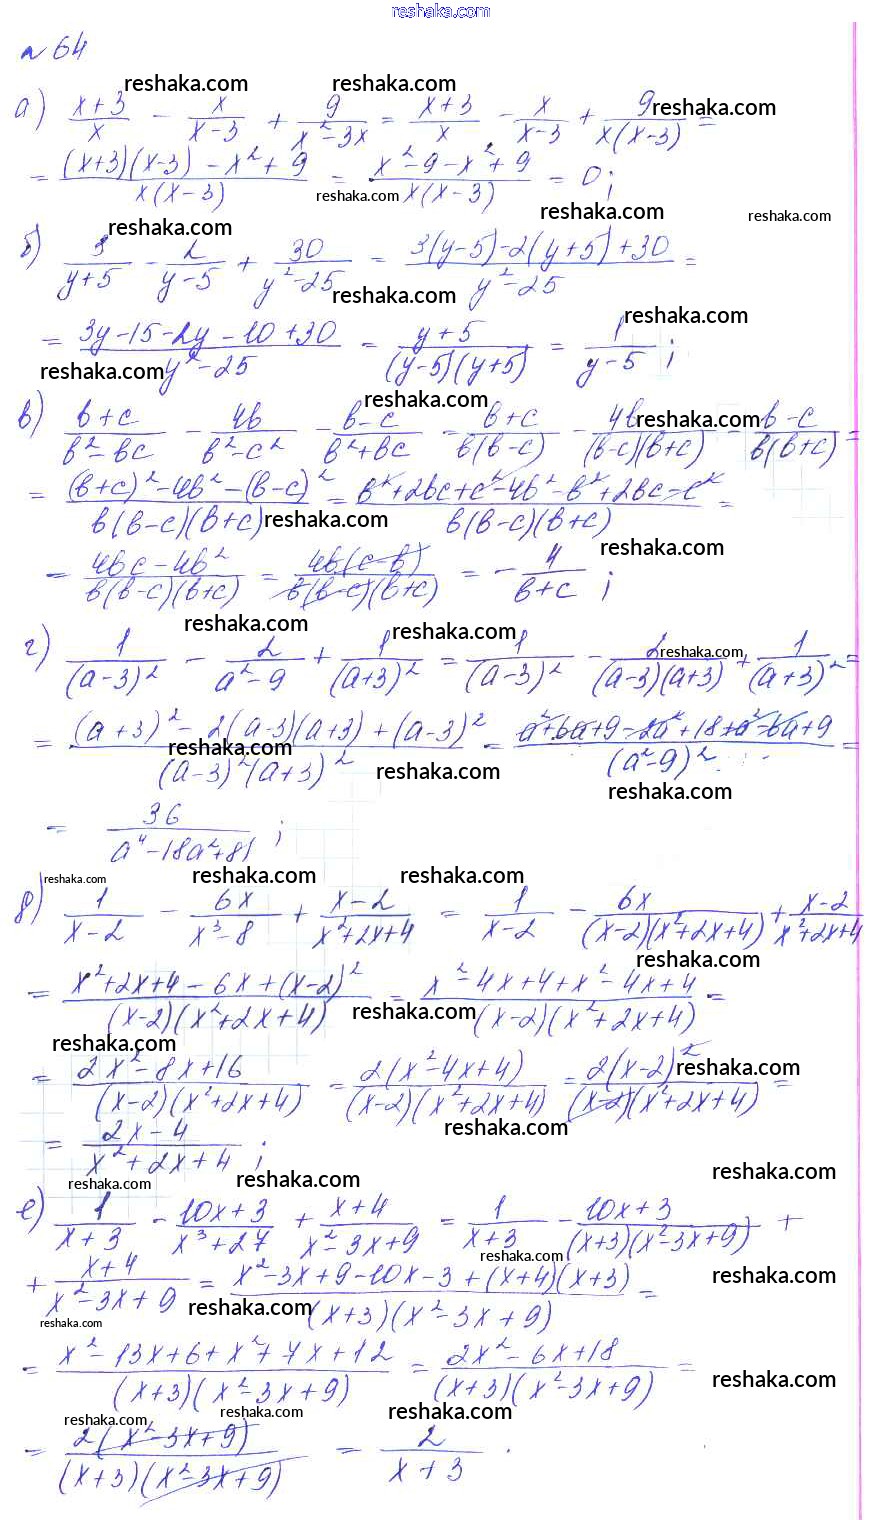 reshaka.com
№ 64
reshaka.com reshaka.com
а) (x+3)/x − x/(x−3) + 9/(x²−3x) = (x+3)/x − x/(x−3) + 9/(x(x−3)) = reshaka.com
= ((x+3)(x−3) − x² + 9)/(x(x−3)) = (x²−9−x²+9)/(x(x−3)) = 0;
reshaka.com reshaka.com reshaka.com
reshaka.com
б) 3/(y+5) − 2/(y−5) + 30/(y²−25) = (3(y−5)−2(y+5)+30)/(y²−25) =
reshaka.com reshaka.com
= (3y−15−2y−10+30)/(y²−25) = (y+5)/((y−5)(y+5)) = 1/(y−5);
reshaka.com reshaka.com
в) (b+c)/(b²−bc) − 4b/(b²−c²) − (b−c)/(b²+bc) = (b+c)/(b(b−c)) − 4b/((b−c)(b+c)) − (b−c)/(b(b+c)) =
reshaka.com
= ((b+c)²−4b²−(b−c)²)/(b(b−c)(b+c)) = (b²+2bc+c²−4b²−b²+2bc−c²)/(b(b−c)(b+c)) =
reshaka.com reshaka.com
= (4bc−4b²)/(b(b−c)(b+c)) = (4b(c−b))/(b(b−c)(b+c)) = −4/(b+c);
reshaka.com reshaka.com
г) 1/(a−3)² − 2/(a²−9) + 1/(a+3)² = 1/(a−3)² − 2/((a−3)(a+3)) + 1/(a+3)² =
reshaka.com
= ((a+3)²−2(a−3)(a+3)+(a−3)²)/((a−3)²(a+3)²) = (a²+6a+9−2a²+18+a²−6a+9)/(a²−9)² =
reshaka.com reshaka.com reshaka.com
= 36/(a⁴−18a²+81);
reshaka.com reshaka.com reshaka.com
д) 1/(x−2) − 6x/(x³−8) + (x−2)/(x²+2x+4) = 1/(x−2) − 6x/((x−2)(x²+2x+4)) + (x−2)/(x²+2x+4)
reshaka.com
= (x²+2x+4−6x+(x−2)²)/((x−2)(x²+2x+4)) = (x²−4x+4+x²−4x+4)/((x−2)(x²+2x+4)) =
reshaka.com reshaka.com
= (2x²−8x+16)/((x−2)(x²+2x+4)) = (2(x²−4x+4))/((x−2)(x²+2x+4)) = (2(x−2)²)/((x−2)(x²+2x+4)) =
reshaka.com reshaka.com
= (2x−4)/(x²+2x+4);
reshaka.com reshaka.com reshaka.com
е) 1/(x+3) − (10x+3)/(x³+27) + (x+4)/(x²−3x+9) = 1/(x+3) − (10x+3)/((x+3)(x²−3x+9)) +
reshaka.com reshaka.com
+ (x+4)/(x²−3x+9) = (x²−3x+9−10x−3+(x+4)(x+3))/((x+3)(x²−3x+9)) =
reshaka.com reshaka.com
= (x²−13x+6+x²+7x+12)/((x+3)(x²−3x+9)) = (2x²−6x+18)/((x+3)(x²−3x+9)) =
reshaka.com reshaka.com reshaka.com reshaka.com
= (2(x²−3x+9))/((x+3)(x²−3x+9)) = 2/(x+3).